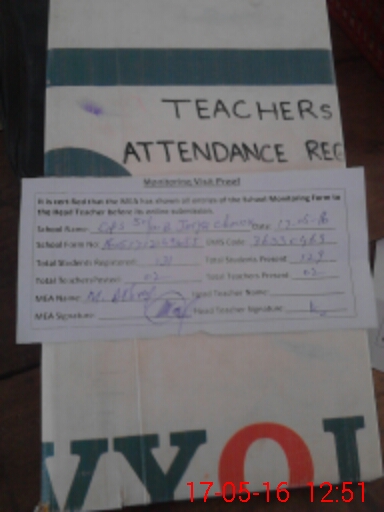 TEACHERS
ATTENDANCE REG
Monitoring Visit Proof
It is certified that the MEA has shown all entries of the School Monitoring Form to
the Head Teacher before its online submission.
School Name: GPS Date 17-05-16
School Form No: EMIS Code:
Total Students Registered: 131 Total Students Present: 129
Total Teachers Posted: 02 Total Teachers Present: 02
MEA Name: M. Head Teacher Name:
MEA Signature: Head Teacher Signature
VYOI
17-05-16 12:51